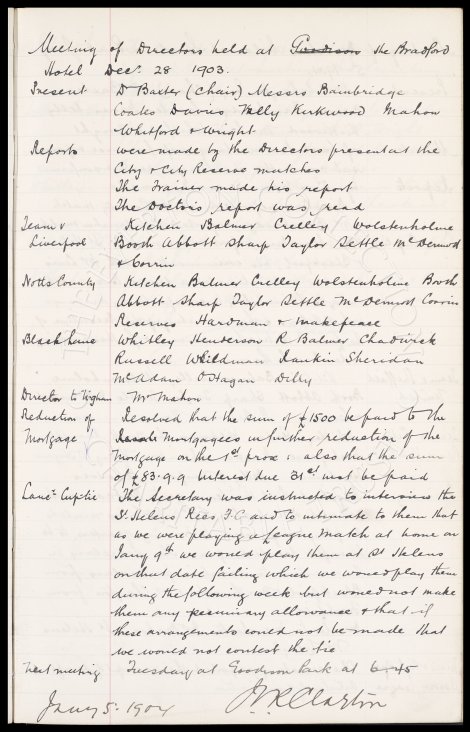 Meeting of Directors held at Goodison the Bradford
Hotel Decr. 28 1903.
Present Dr Baxter (Chair) Messrs Bainbridge
Coates Davies Kelly Kirkwood Mahon
Whitford & Wright
Reports were made by the Directors present at the
City & City Reserve matches
The Trainer made his report
The Doctors report was read
Team v Kitchen Balmer Crelley Wolstenholme
Liverpool Booth Abbott Sharp Taylor Settle McDermot
& Corrin
Notts County Kitchen Balmer Crelley Wolstenholme Booth
Abbott Sharp Taylor Settle McDermot Corrin
Reserves Hardman & Makepeace
Black Lane Whitley Henderson R Balmer Chadwick
Russell Wildman Rankin Sheridan
McAdam O'Hagan Dilly
Director to Wigham Mr Mahon
Reduction of Resolved that the sum of £1500 be paid to the
Mortgage Mortgagees in further reduction of the
Mortgage on the 1st prox: also that the sum
of £83.9.9 interest due 31st inst be paid
Lancs Cup tie The Secretary was instructed to interview the
St Helens Recs F.C and to intimate to them that
as we were playing a League match at home on
Jany 9th we would play them at St Helens
on that date failing which we would play them
during the following week but would not make
them any pecuniary allowance & that if
these arrangements could not be made that
we would not contest the tie
Next meeting Tuesday at Goodison Park at 6-45
Jany 5. 1904